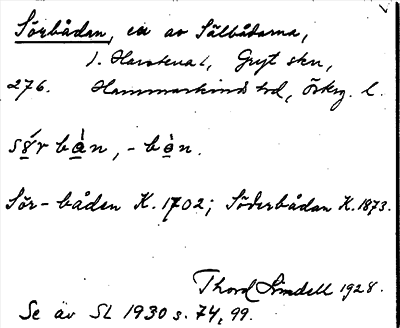 Sörbådan, en av Sälbådarna,
1. Harstena 1, Gryt skn,
276. Hammarkinds hd, Ösierg. l.
sör bån, -bån.
Sör-båden K. 1702; Söderbådan K. 1873.
Thord Lindell 1928.
Se äv SL 1930 s. 74, 99.